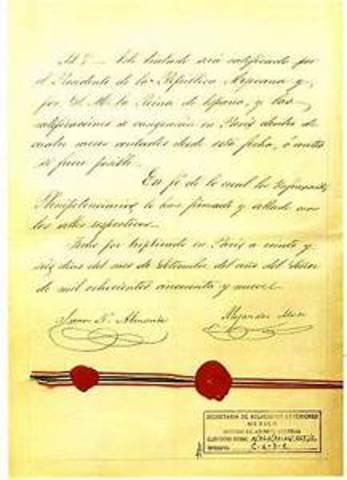 Art. 7. — Este tratado será ratificado por
el Presidente de la República Mexicana y
por S. M. la Reina de España, y las
ratificaciones se cangearán en Paris dentro de
cuatro meses contados desde esta fecha, ó antes
si fuere posible.
En fé de lo cual los Infrascritos
Plenipotenciarios lo han firmado y sellado con
los sellos respectivos.
Fecho por triplicado en Paris a veinte y
seis dias del mes de Setiembre del año del Señor
de mil ochocientos cincuenta y nueve.
Juan N. Almonte Alejandro Mon
SECRETARIA DE RELACIONES EXTERIORES
MEXICO